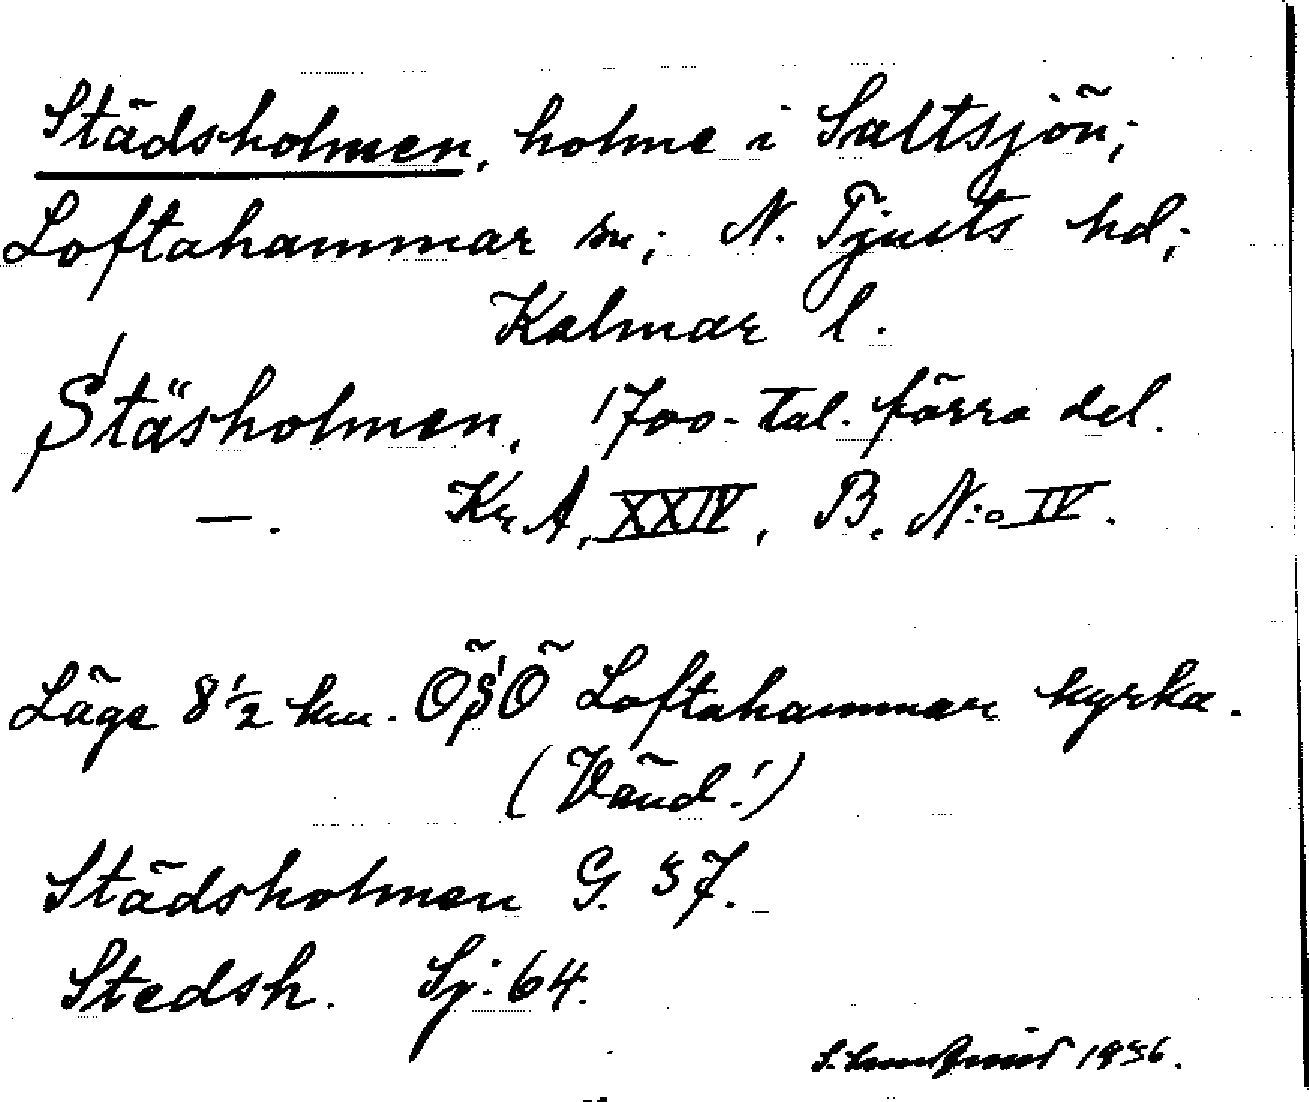 Städsholmen, holme i Saltsjön;
Loftahammar sn; N. Tjusts hd;
Kalmar l.
Stäsholmen, 1700-tal. förra del.
—. Kr. A, XXIV, B. N:o IV.
Läge 8 1/2 km. ÖSÖ Loftahammar kyrka.
(Vänd!)
Städsholmen G. 37.
Stedsh. Sj: 64.
1936.